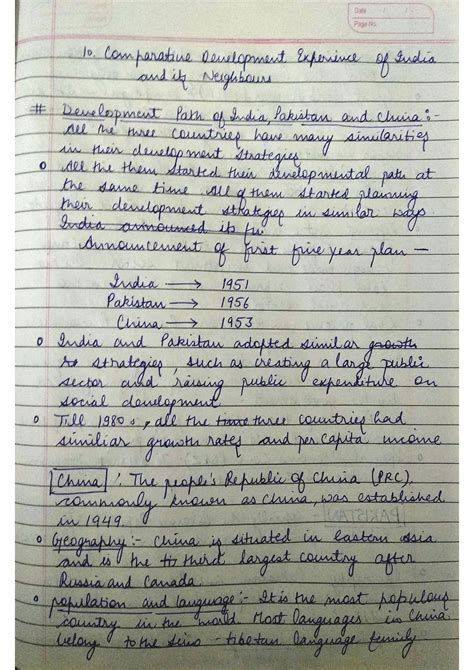 Date / /
Page No.
10. Comparative Development Experience of India
and its Neighbours
# Development Path of India, Pakistan and China :-
All the three countries have many similarities
in their development strategies
o All the them started their developmental path at
the same time All of them started planning
their development strategies in similar ways
India announced its fi
Announcement of first five year plan —
India → 1951
Pakistan → 1956
China → 1953
o India and Pakistan adopted similar growth
strategies, such as creating a large public
sector and raising public expenditure on
social development
o Till 1980s, all the time three countries had
similiar growth rates and per capita income
China : The people's Republic of China (PRC),
commonly known as China, was established
in 1949.
o Geography :- China is situated in Eastern Asia
and is the th third largest country after
Russia and Canada.
o population and language :- It is the most populous
country in the world Most languages in China
belong to the Sino - tibetan language family